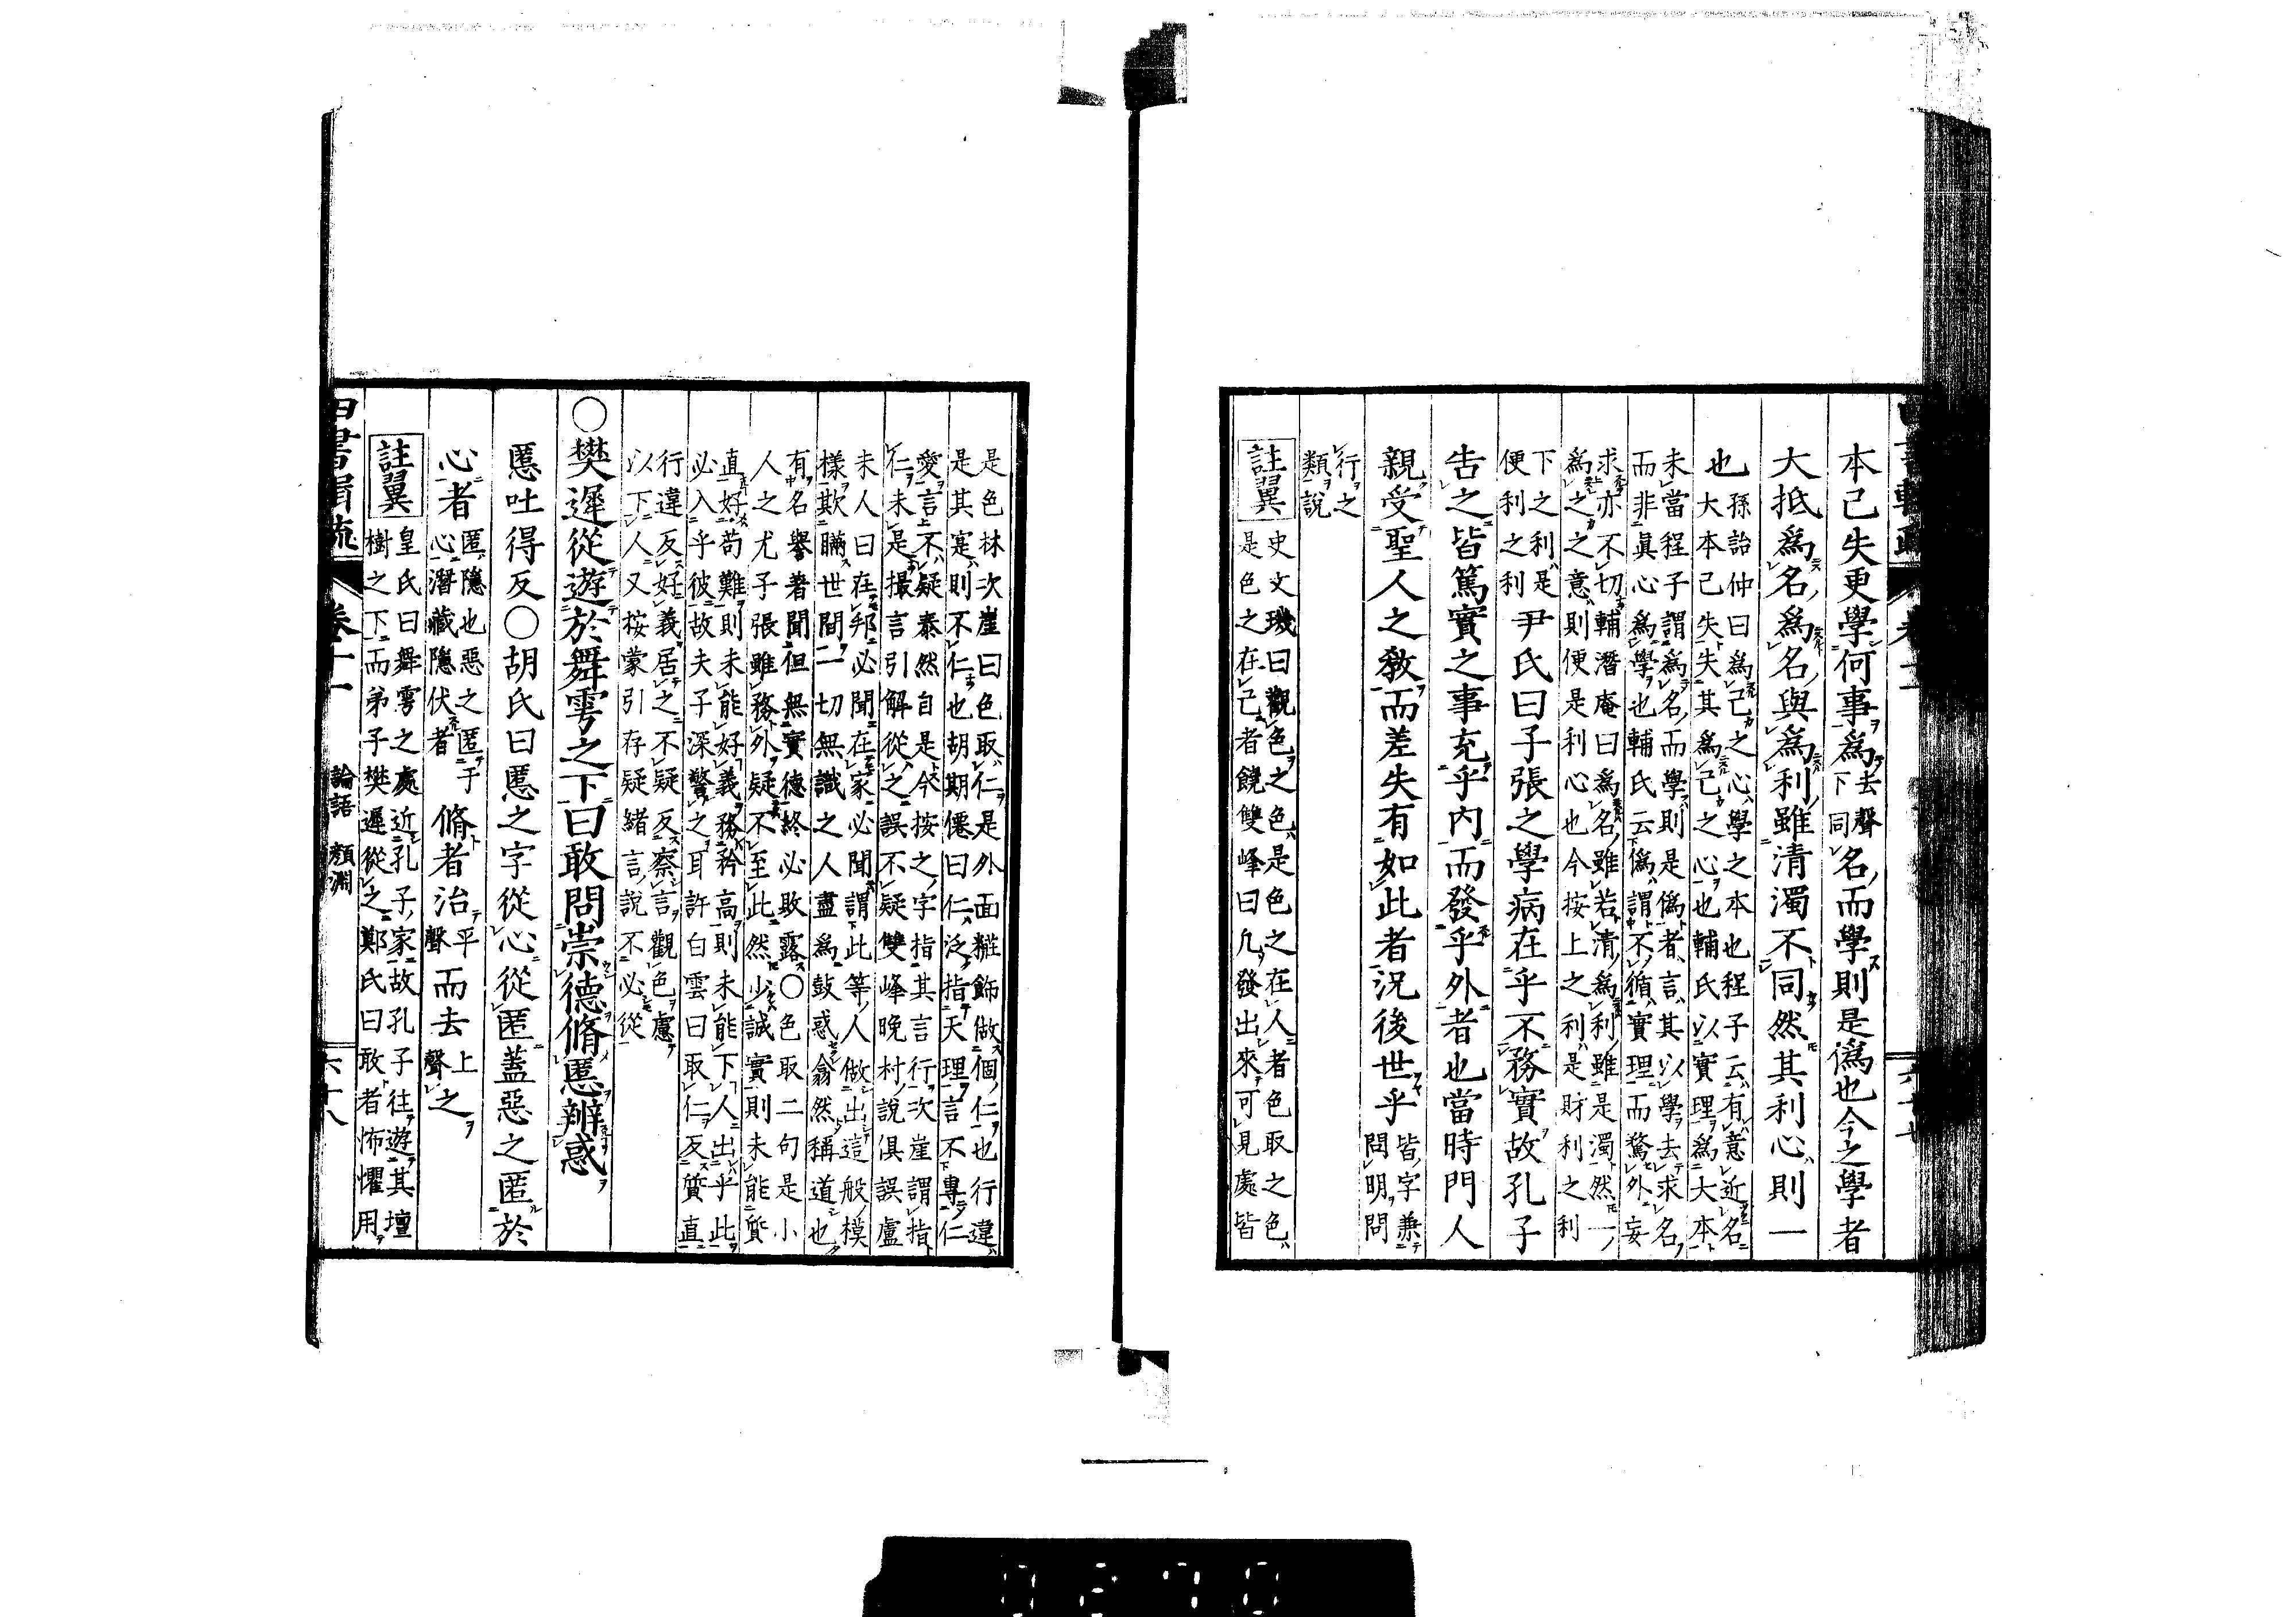 本已失更學何事爲去聲下同名而學則是僞也今之學者
大抵爲名爲名與爲利雖清濁不同然其利心則一
也孫詒仲曰爲己之心學之本也程子云有意近名
大本已失失其爲己之心也輔氏以實理爲大本
未當程子謂爲名而學則是僞者言其以學去求名
而非眞心爲學也輔氏云僞謂不循實理而騖外妄
求亦不切輔潛庵曰爲名雖若清爲利雖是濁然一
爲之之意則便是利心也今按上之利是財利之利
下之利是
便利之利尹氏曰子張之學病在乎不務實故孔子
告之皆篤實之事充乎内而發乎外者也當時門人
親受聖人之教而差失有如此者況後世乎皆字兼
問明問
行之
類說
註翼史文璣曰觀色之色是色之在人者色取之色
是色之在己者饒雙峰曰凡發出來可見處皆
是色林次崖曰色取仁是外面糚飾做個仁也行違
是其寔則不仁也胡期僊曰仁泛指天理言不專仁
愛言不疑泰然自是今按之字指其言行次崖謂指
仁未是撮言引解從之誤不疑雙峰晩村說俱誤盧
未人曰在邦必聞在家必聞謂此等人做出這般模
樣欺瞞世間一切無識之人盡爲鼓惑翕然稱道也
有名譽著聞但無實德終必敗露〇色取二句是小
人之尤子張雖務外疑不至此然少誠實則未能質
直好苟難則未能好義務矜高則未能下人出乎此
必入乎彼故夫子深警之耳許白雲曰取仁反質直
行違反好義居之不疑反察言觀色慮
以下人又按蒙引存疑緒言說不必從
〇樊遲從遊於舞雩之下曰敢問崇德脩慝辨惑
慝吐得反〇胡氏曰慝之字從心從匿蓋惡之匿於
心者匿隱也惡之匿于
心潛藏隱伏者脩者治平聲而去上聲之
註翼皇氏曰舞雩之處近孔子家故孔子往遊其壇
樹之下而弟子樊遲從之鄭氏曰敢者怖懼用
四書輯疏 卷十一 論語 顏淵 六十八